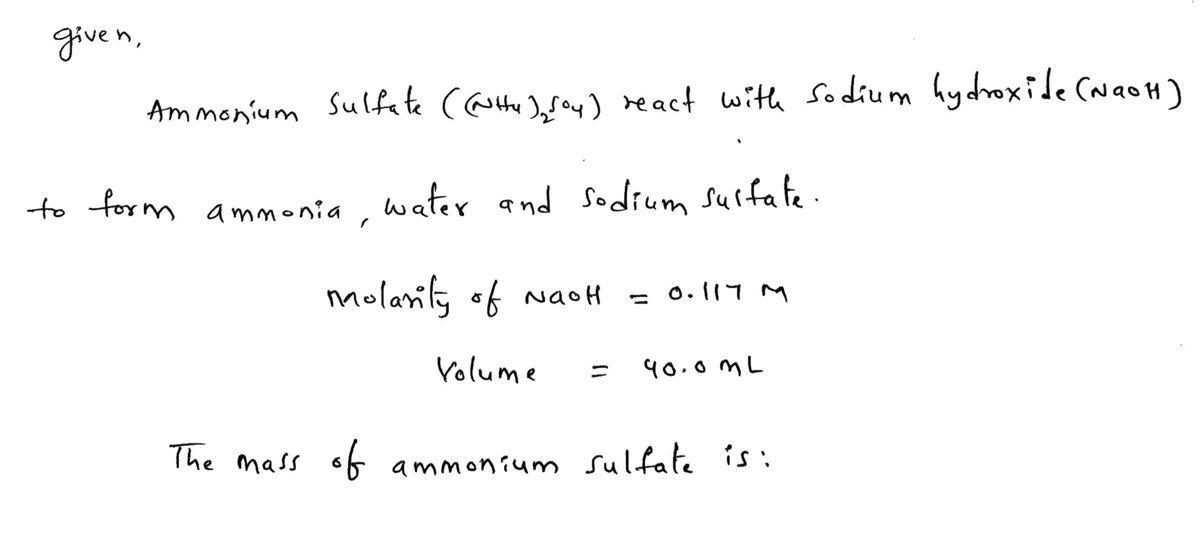 given,
Ammonium Sulfate ((NH4)2SO4) react with Sodium hydroxide (NaOH)
to form ammonia, water and Sodium sulfate.
molarity of NaOH = 0.117 M
Volume = 40.0 mL
The mass of ammonium sulfate is: